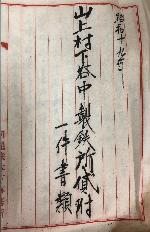 昭和十九年
山上村下谷中製鉄所貸附
一件書類